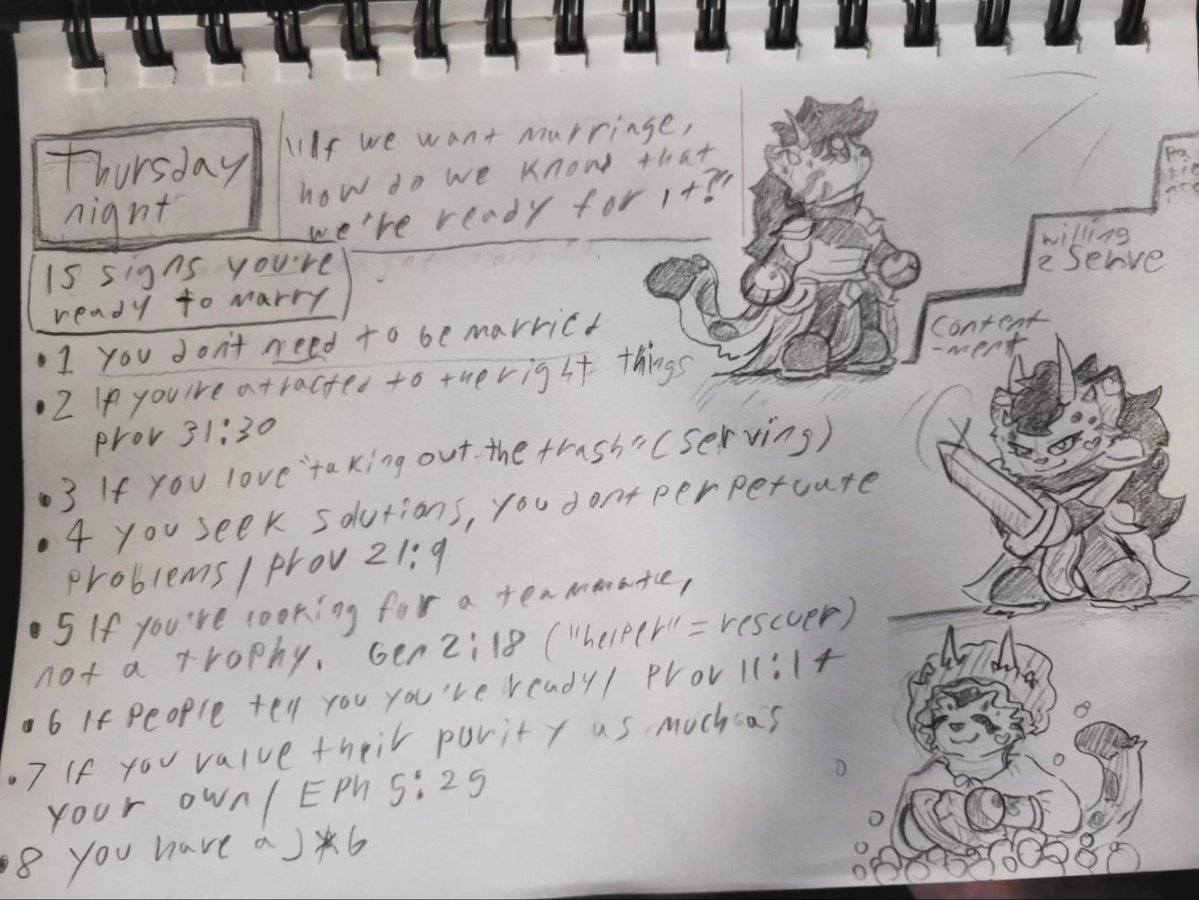 Thursday
night
"If we want murringe,
how do we know that
we're ready for it?"
15 signs you're
ready to marry
•1 you don't need to be married
•2 If you're atracted to the right things
prov 31:30
•3 If you love "taking out the trash" (serving)
•4 you seek solutions, you dont perpetuate
problems/prov 21:9
•5 If you're looking for a teammate,
not a trophy. Gen 2:18 ("helper" = rescuer)
•6 If people tell you you're ready/ prov 11:14
•7 If you value their purity as much as
your own/ Eph 5:25
•8 you have a J*b
pa
tie
nce
willing
2 Serve
Content
-ment